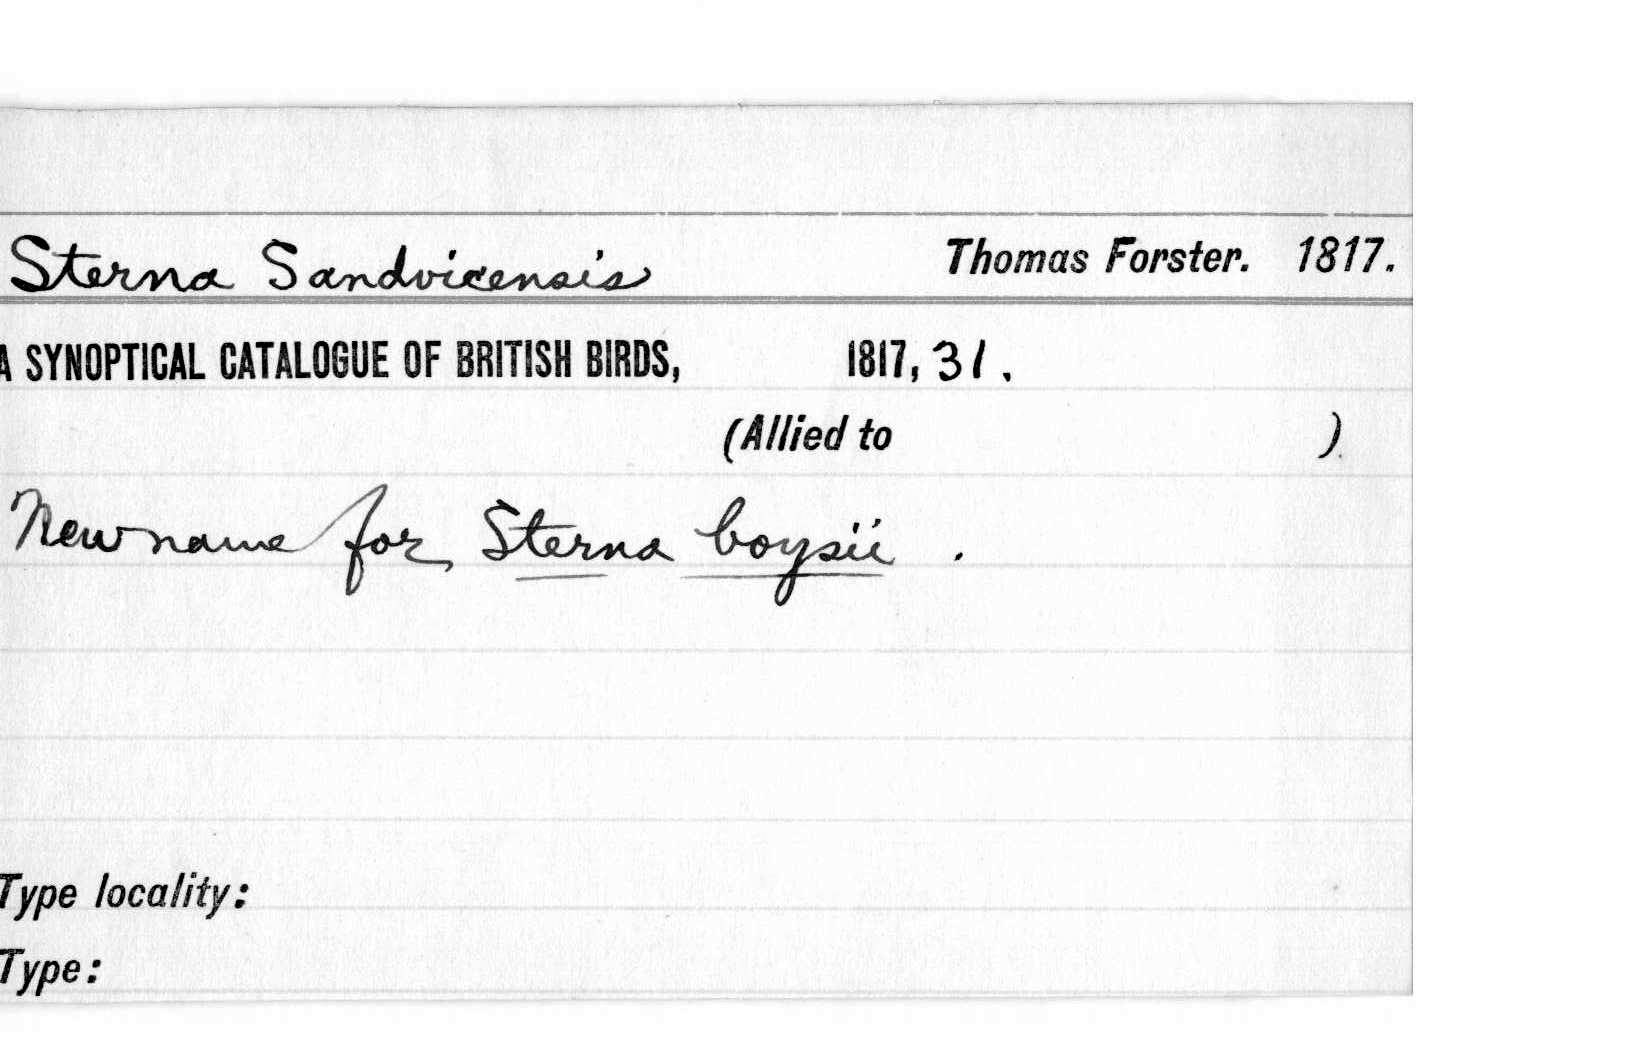 Sterna Sandvicensis Thomas Forster. 1817.
A SYNOPTICAL CATALOGUE OF BRITISH BIRDS, 1817, 31.
(Allied to )
New name for Sterna boysii.
Type locality:
Type: